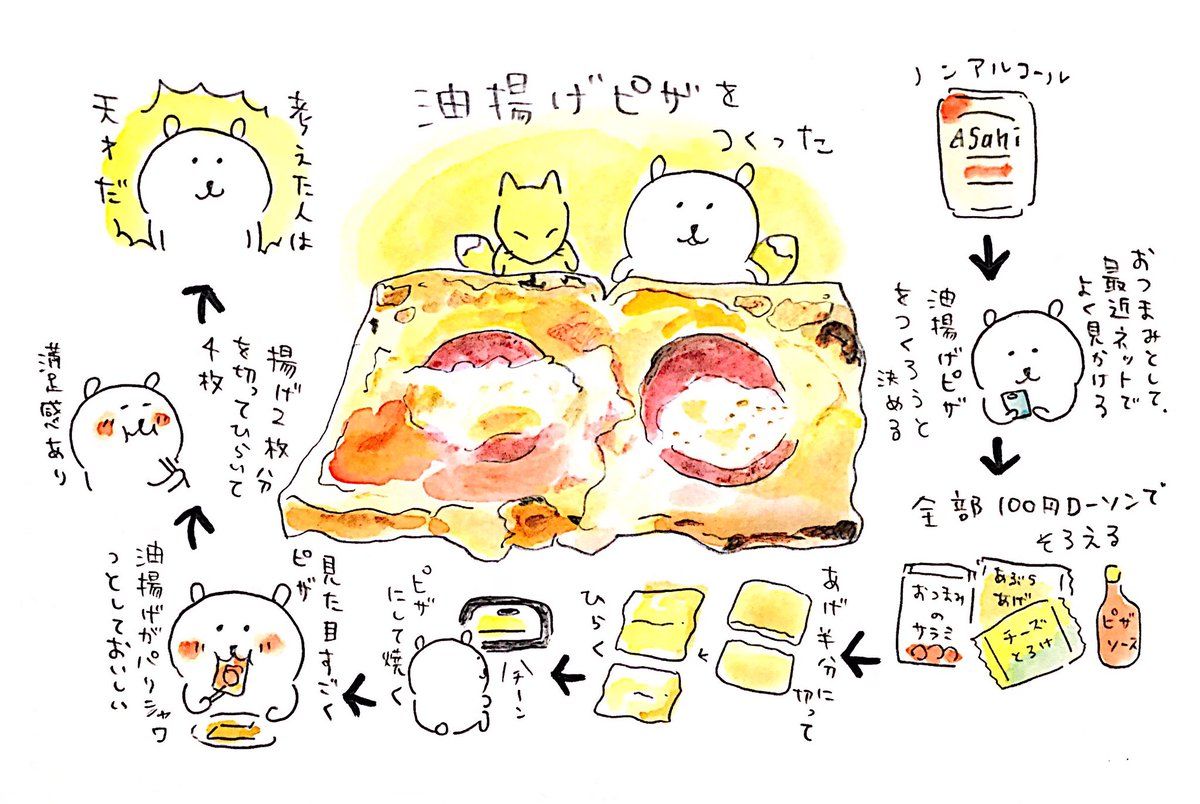 油揚げピザを
つくった
ノンアルコール
Asahi
おつまみとして、
最近ネットで
よく見かける
油揚げピザ
をつくろうと
決める
全部100円ローソンで
そろえる
おつまみ
の
サラミ
あぶら
あげ
チーズ
とろけ
ピザ
ソース
あげ半分に
切って
ひらく
ピザ
にして焼く
パチーン
見た目すごく
ピザ
油揚げがパリシャワ
っとしておいしい
揚げ2枚分
を切ってひらいて
4枚
満足感あり
考えた人は
天才だ